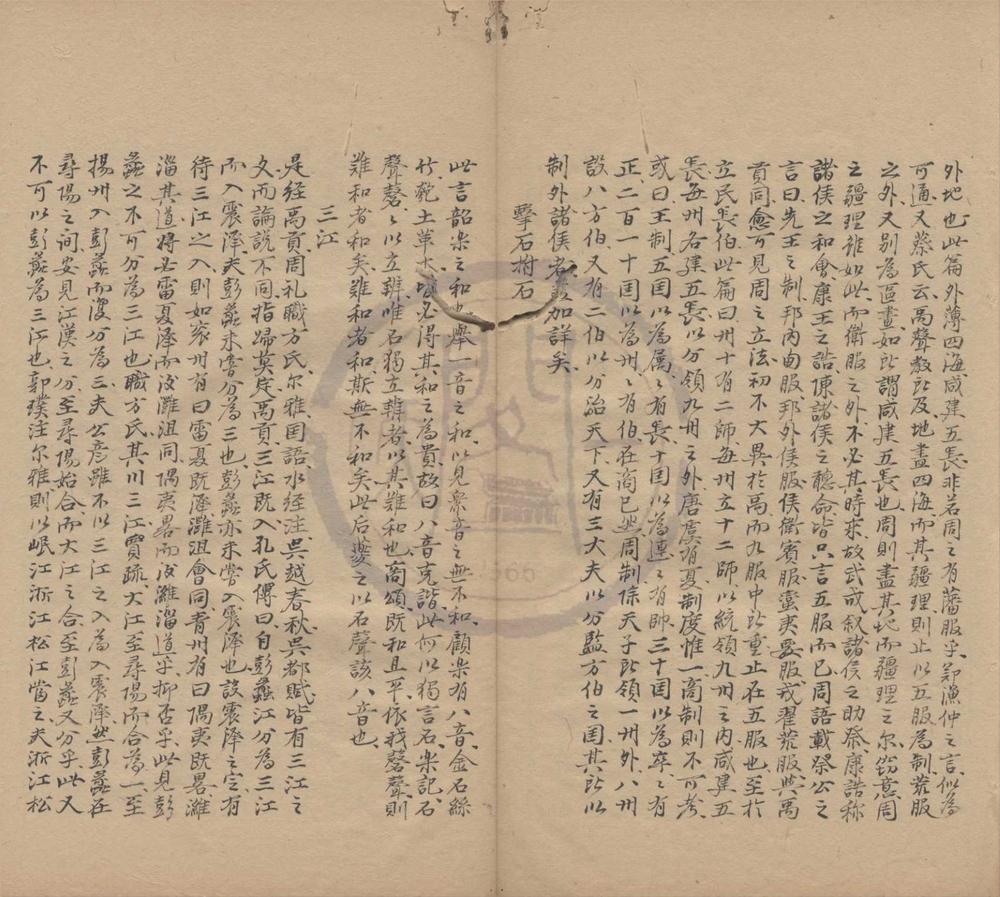 外地也此篇外薄四海咸建五長非若周之有藩服乎鄭漁仲之言似為
可通又蔡氏云禹聲教所及地盡四海而其疆理則止以五服為制荒服
之外又別為區畫如所謂咸建五長也周則盡其地而疆理之尔窃意周
之疆理雖如此而衛服之外不必其時来故武成叙諸侯之助祭康誥称
諸侯之和會康王之誥陳諸侯之聽命皆只言五服而已周語載祭公之
言曰先王之制邦内甸服邦外侯服侯衛賔服蛮夷要服戎翟荒服與禹
貢同愈可見周之立法初不大異扵禹而九服中所重止在五服也至扵
立民長伯此篇曰州十有二師每州立十二師以統領九州之内咸建五
長每州各建五長以分領九州之外唐虞有夏制度惟一商制則不可考
或曰王制五囯以為属々有長十囯以為連々有帥三十囯以為卒々有
正二百一十囯以為州々有伯在商已然周制除天子所領一州外八州
設八方伯又有二伯以分治天下又有三大夫以分監方伯之囯其所以
制外諸侯者益加詳矣
擊石拊石
此言韶樂之和也舉一音之和以見衆音之無不和顧樂有八音金石絲
竹匏土革木皆必得其和之為貴故曰八音克諧此何以獨言石樂記石
聲磬々以立辨惟石獨立辨者以其難和也商頌既和且平依我磬聲則
難和者和矣難和者和斯無不和矣此后夔之以石聲該八音也
三江
是経禹貢周礼職方氏尔雅囯語水経注吳越春秋吳都賦皆有三江之
文而論說不同指歸莫定禹貢三江既入孔氏傳曰自彭蠡江分為三江
而入震澤夫彭蠡未嘗分為三也彭蠡亦未嘗入震澤也設震澤之定有
待三江之入則如兖州有曰雷夏既澤灉沮會同青州有曰隅夷既畧濰
淄其道将必雷夏澤而後灉沮同隅夷畧而後濰淄道乎抑否乎此見彭
蠡之不可分為三江也職方氏其川三江賈疏大江至尋陽而合為一至
揚州入彭蠡而復分為三夫公彦雖不以三江之入為入震澤然彭蠡在
尋陽之間安見江漢之分至尋陽始合而大江之合至彭蠡又分乎此又
不可以彭蠡為三江也郭璞注尔雅則以岷江浙江松江當之夫浙江松